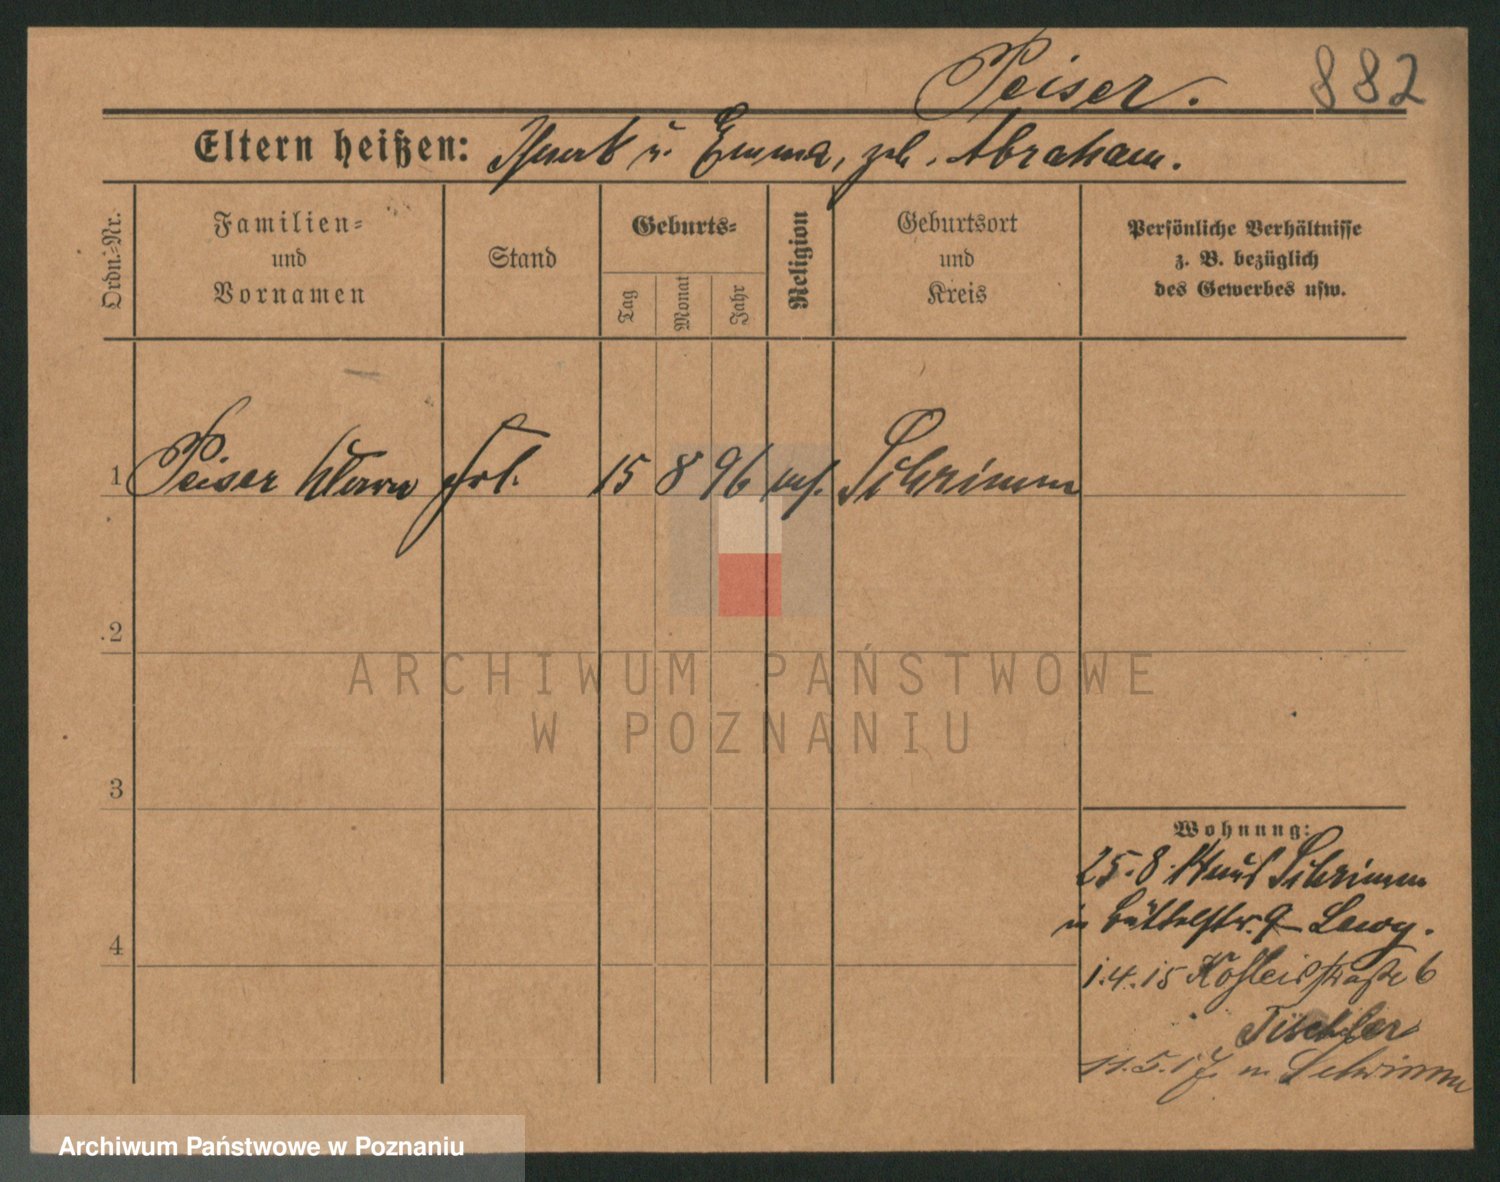 Peiser. 882
Eltern heißen: Isaak u. Emma, geb. Abraham.
Ordn.-Nr.
Familien-
und
Vornamen
Stand
Geburts-
Tag
Monat
Jahr
Religion
Geburtsort
und
Kreis
Persönliche Verhältnisse
z. B. bezüglich
des Gewerbes usw.
1 Peiser Klara Frl. 15 8 96 mos. Schrimm
2
3
4
ARCHIWUM PAŃSTWOWE
W POZNANIU
Wohnung:
25.8.14 aus Schrimm
in Büttelstr. 9 Lewy.
1.4.15 straße 6
Tischler
11.5.17. n. Schrimm
Archiwum Państwowe w Poznaniu